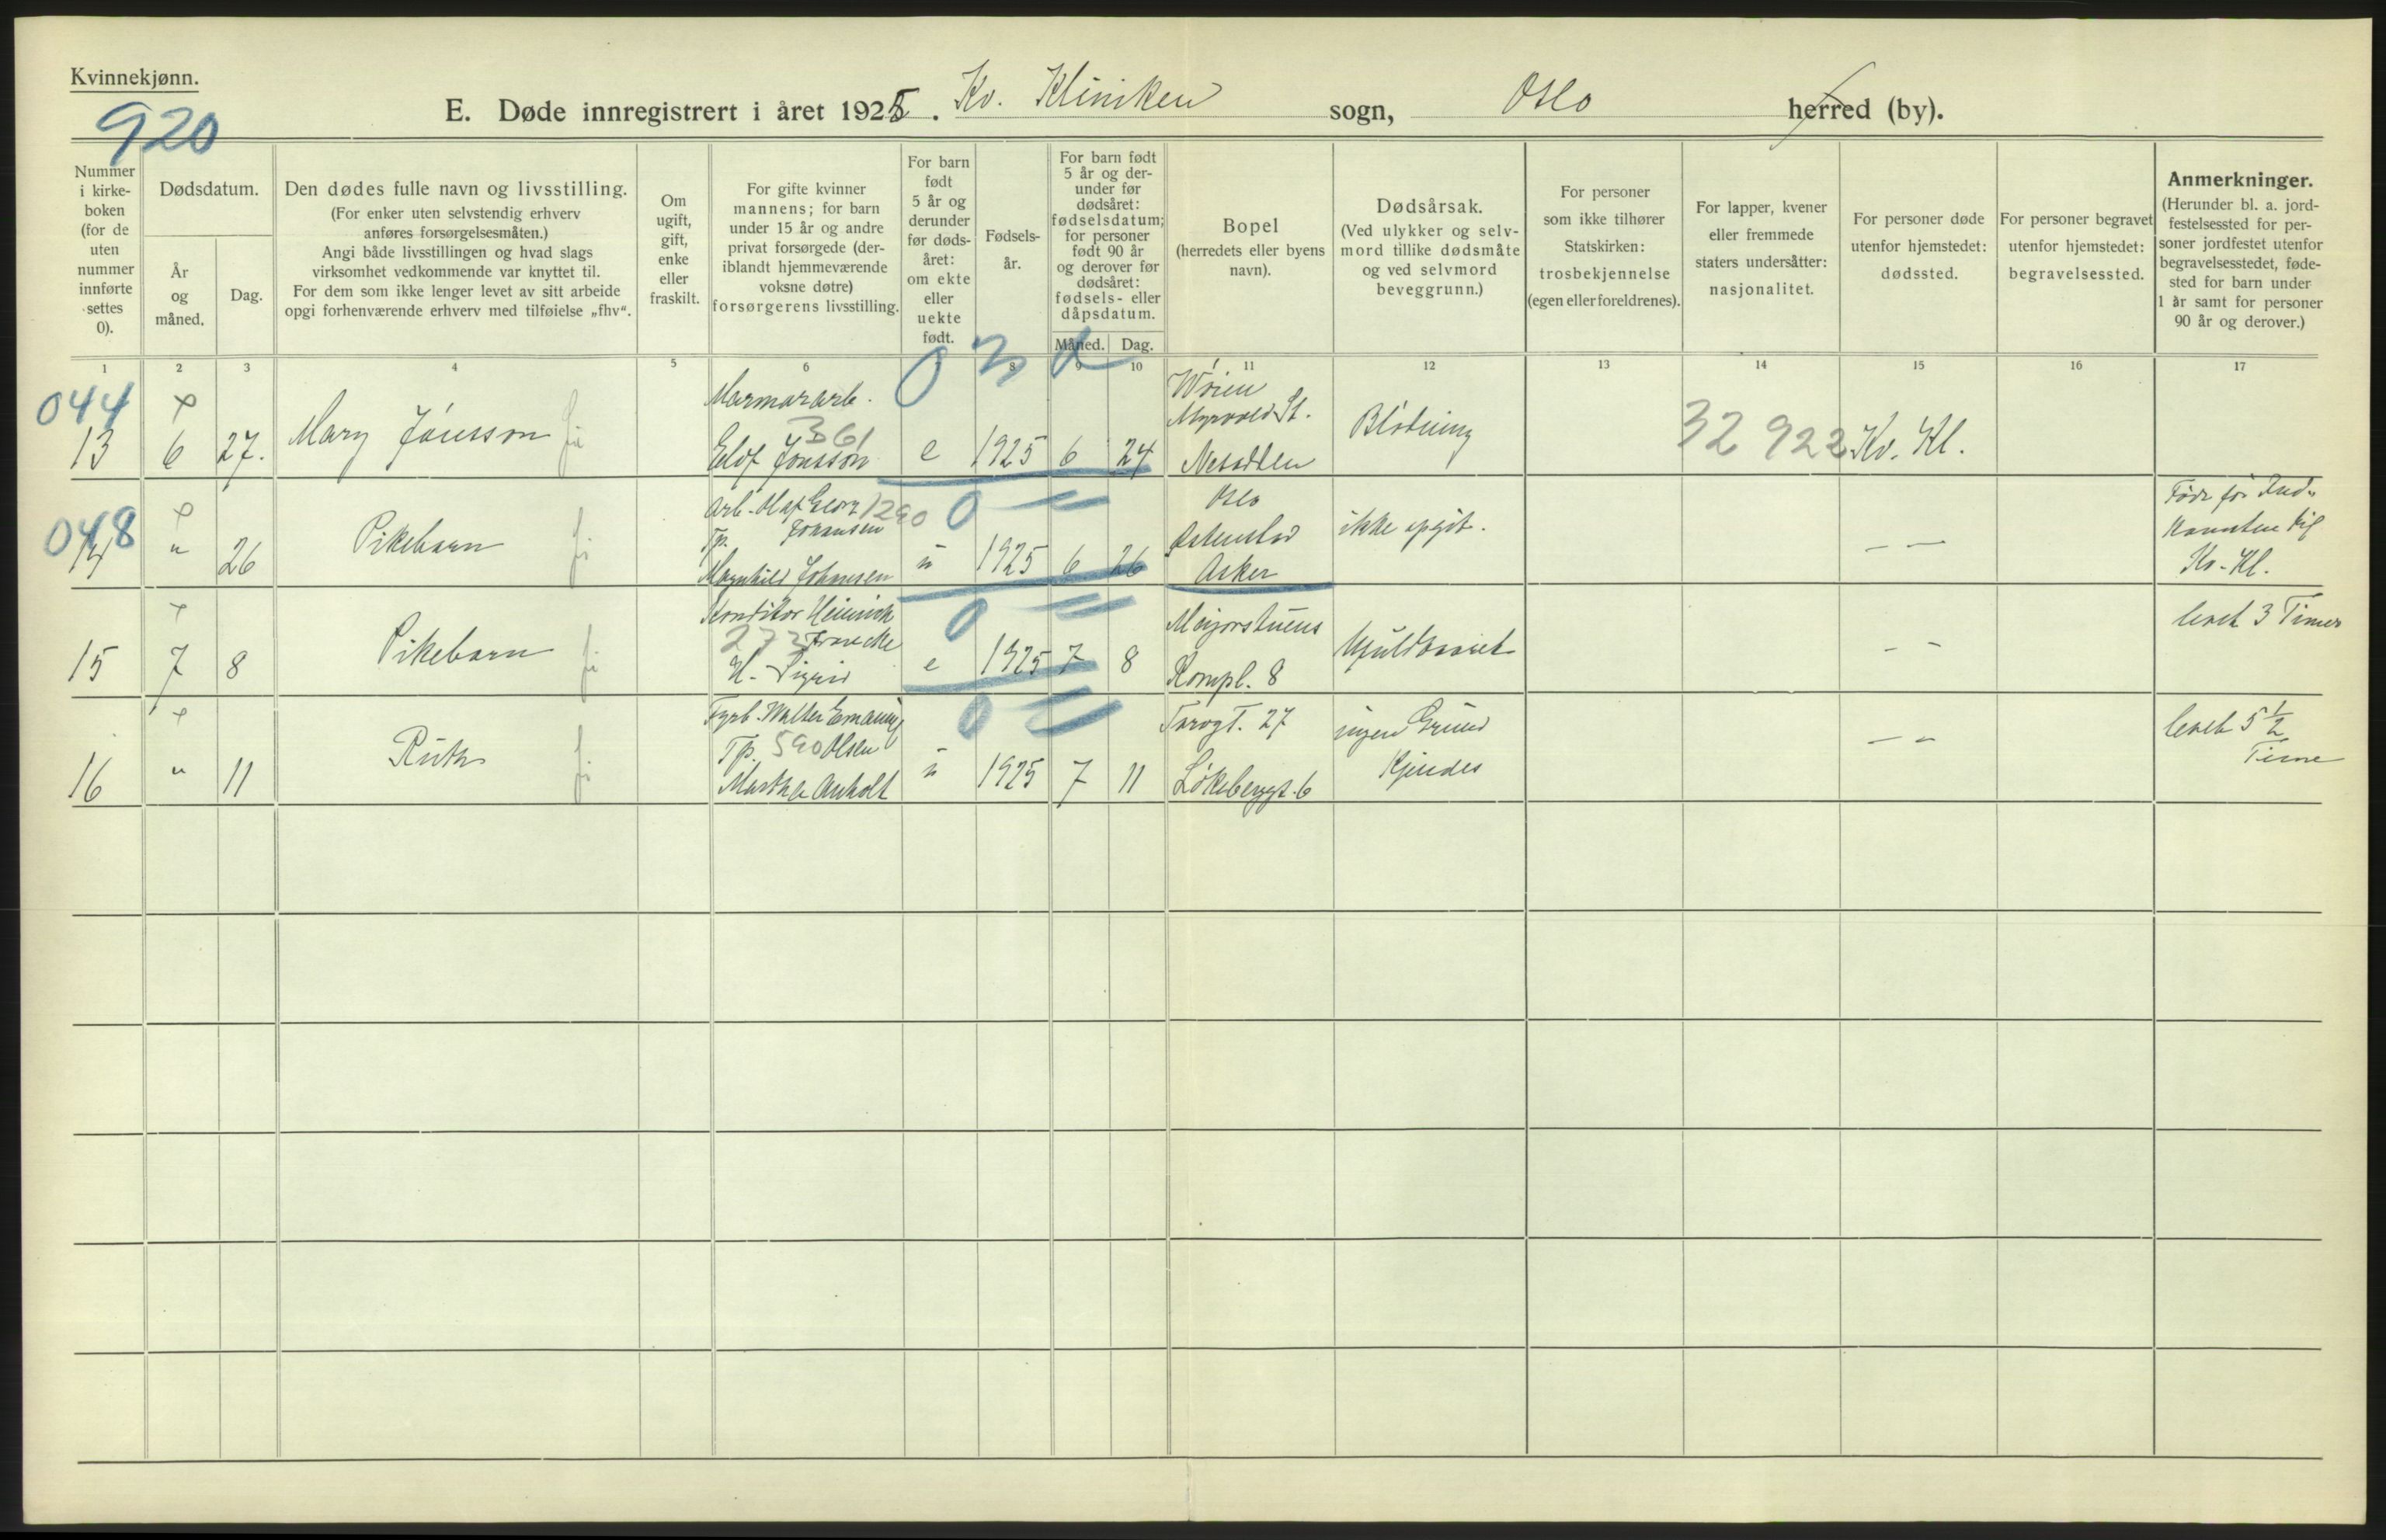 Kvinnekjønn.
920
E. Døde innregistrert i året 1925. Kv. Kliniken sogn, Oslo herred (by).
Nummer i kirke-boken (for de uten nummer innførte settes 0).
Dødsdatum.
År og måned.
Dag.
Den dødes fulle navn og livsstilling.
(For enker uten selvstendig erhverv
anføres forsørgelsesmåten.)
Angi både livsstillingen og hvad slags
virksomhet vedkommende var knyttet til.
For dem som ikke lenger levet av sitt arbeide
opgi forhenværende erhverv med tilføielse „fhv“.
Om ugift, gift, enke eller fraskilt.
For gifte kvinner
mannens; for barn
under 15 år og andre
privat forsørgede (der-
iblandt hjemmeværende
voksne døtre)
forsørgerens livsstilling.
For barn født 5 år og derunder før døds-året: om ekte eller uekte født.
Fødsels-år.
For barn født
5 år og der-
under før
dødsåret:
fødselsdatum;
for personer
født 90 år
og derover før
dødsåret:
fødsels- eller
dåpsdatum.
Måned. Dag.
Bopel
(herredets eller byens
navn).
Dødsårsak.
(Ved ulykker og selv-
mord tillike dødsmåte
og ved selvmord
beveggrunn.)
For personer
som ikke tilhører
Statskirken:
trosbekjennelse
(egen eller foreldrenes).
For lapper, kvener
eller fremmede
staters undersåtter:
nasjonalitet.
For personer døde
utenfor hjemstedet:
dødssted.
For personer begravet
utenfor hjemstedet:
begravelsessted.
Anmerkninger.
(Herunder bl. a. jord-
festelsessted for per-
soner jordfestet utenfor
begravelsesstedet, føde-
sted for barn under
1 år samt for personer
90 år og derover.)
1 2 3 4 5 6 8 9 10 11 12 13 14 15 16 17
044
13 6 27. Mary Jónsson
Marmorarb.
361
Elof Jonsson
e 1925 6 24
Myrvold St.
Nesodden
Blødning
32 922
Kv. Kl.
048
14 " 26 Pikebarn
Arb. Olaf Georg 1290
Johansen
Tp.
Magnhild Johansen
u 1925 6 26
Oslo
Østenstad
Asker
ikke opgit.
— —
Født før Ind-
komsten til
Kv. Kl.
15 7 8 Pikebarn
Konditor Heinrich
273 Francke
H. Sigrid
e 1925 7 8
Majorstuens
Kompl. 8
— —
levet 3 Timer
16 " 11 Ruth
Fyrb. Walter Emanuel
Tp. 590 Olsen
Martha Anholt
u 1925 7 11
Torvgt. 27
Løkkebergt. 6
ingen Grund
Kjendes
— —
levet 5 1/2
Time